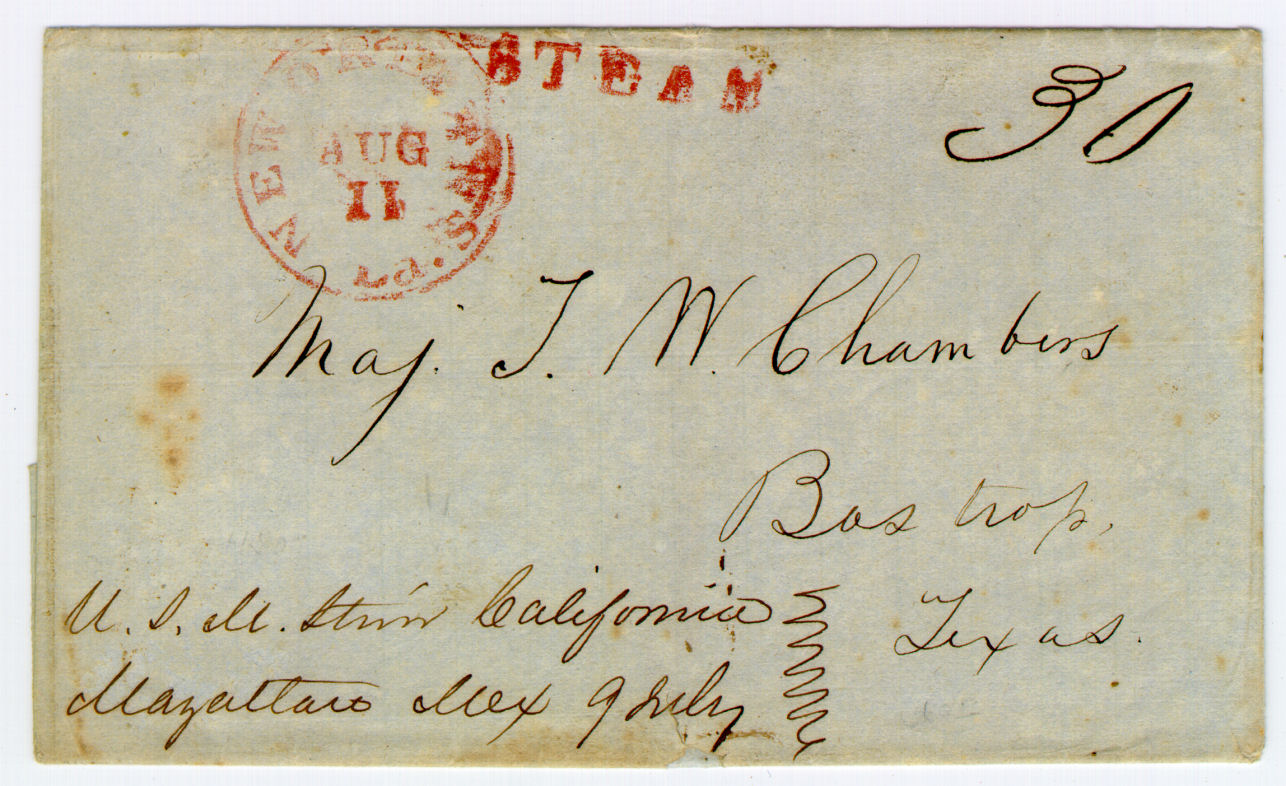 STEAM
30
NEW ORLEANS La.
AUG
11
Maj. T. W. Chambers
Bastrop,
Texas.
U. S. M. Stmr California
Mazattan Mex 9 July